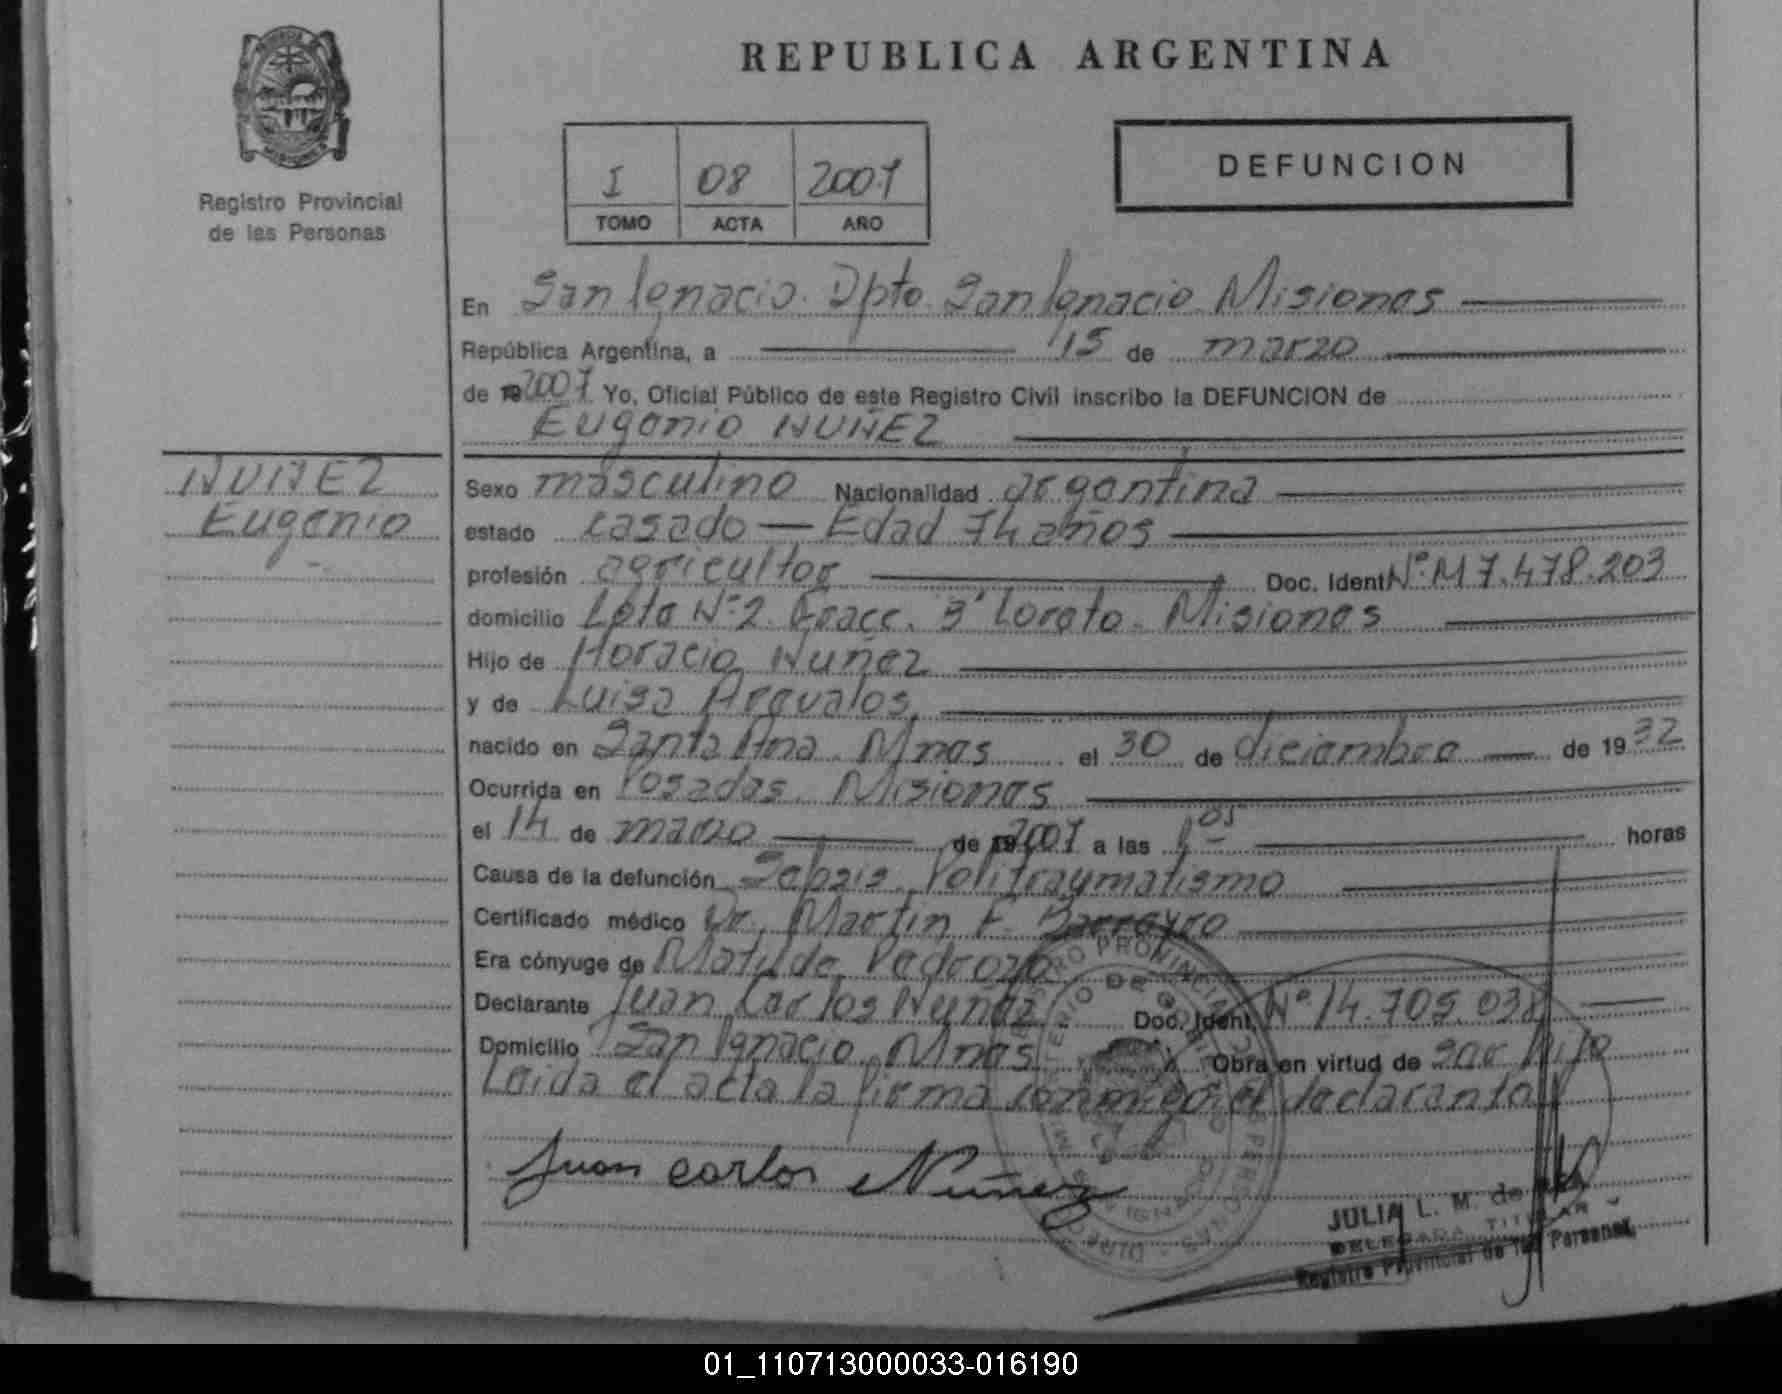 REPUBLICA ARGENTINA
PROVINCIA DE
MISIONES
Registro Provincial
de las Personas
I 08 2007
TOMO ACTA AÑO
DEFUNCION
En San Ignacio. Dpto. San Ignacio Misiones
República Argentina, a 15 de marzo
de 19 2007 Yo, Oficial Público de este Registro Civil inscribo la DEFUNCION de
Eugenio NUÑEZ
NUÑEZ
Eugenio
Sexo masculino Nacionalidad argentina
estado casado — Edad 74 años
profesión agricultor Doc. Ident. Nº M 7.478.203
domicilio Lote Nº 2. Fracc. 3ª Loreto. Misiones
Hijo de Horacio Nuñez
y de Luisa Arevalos
nacido en Santa Ana. Mnes el 30 de diciembre de 1932
Ocurrida en Posadas. Misiones
el 14 de marzo de 19 2007 a las 1 05 horas
Causa de la defunción Sepsis. Politraumatismo
Certificado médico Dr. Martin F. Barreyro
Era cónyuge de Matilde Pedrozo
Declarante Juan Carlos Nuñez Doc. Ident. Nº 14.705.038
Domicilio San Ignacio. Mnes Obra en virtud de ser hijo
Leida el acta la firma conmigo el declarante
Juan carlos Nuñez
JULIA L. M. de
DELEGADA TITULAR
Registro Provincial de las Personas
01_110713000033-016190